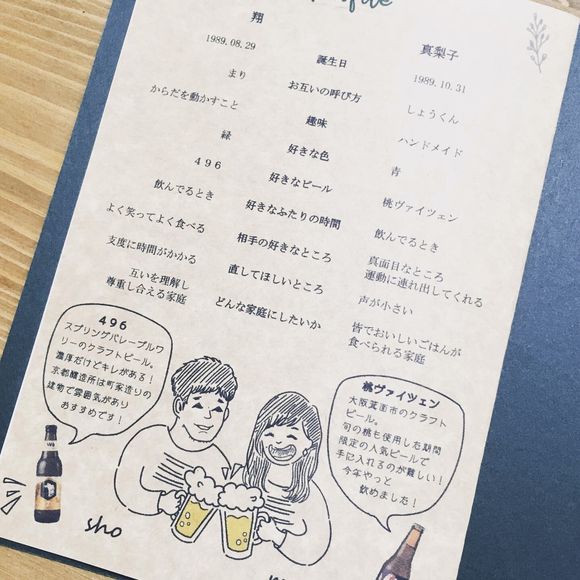 翔 真梨子
1989.08.29 誕生日 1989.10.31
まり お互いの呼び方 しょうくん
からだを動かすこと 趣味 ハンドメイド
緑 好きな色 青
496 好きなビール 桃ヴァイツェン
飲んでるとき 好きなふたりの時間 飲んでるとき
よく笑ってよく食べる 相手の好きなところ 真面目なところ
運動に連れ出してくれる
支度に時間がかかる 直してほしいところ 声が小さい
互いを理解し
尊重し合える家庭 どんな家庭にしたいか 皆でおいしいごはんが
食べられる家庭
496
スプリングバレーブルワ
リーのクラフトビール。
濃厚だけどキレがある!
京都醸造所は町家造りの
建物で雰囲気があり
おすすめです!
桃ヴァイツェン
大阪箕面市のクラフト
ビール。
旬の桃も使用した期間
限定の人気ビールで
手に入れるのが難しい!
今年やっと
飲めました!
sho